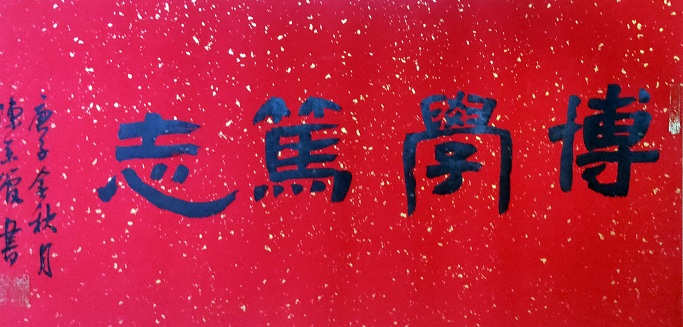 博學篤志
庚子金秋月
陳玉霞書